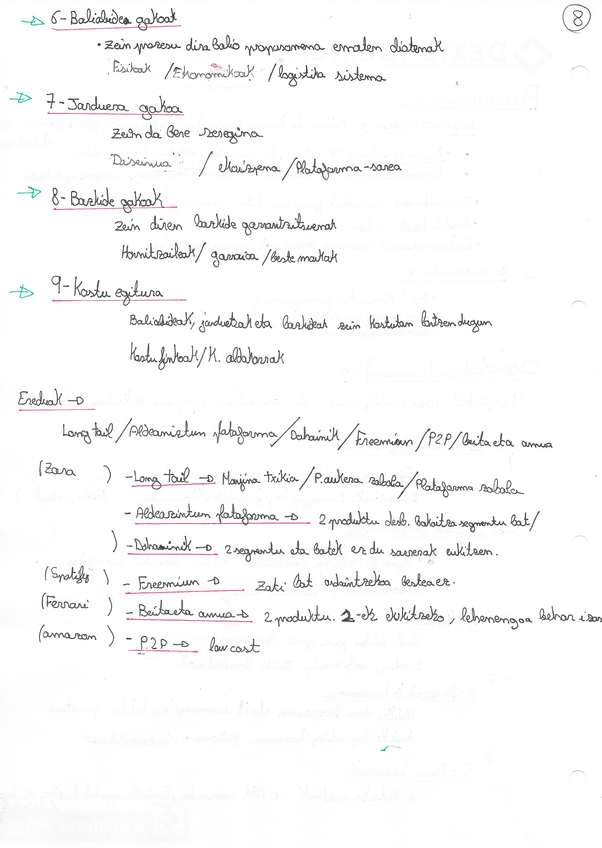 8
6-Baliabidea gakoak
• Zein prozesu dira balio proposamena ematen diatenak
Fisikoak / Ekonomikoak / logistika sistema
7-Jarduera gakoa
Zein da bere zeregina
Diseinua / ekoizpena / Plataforma-sarea
8-Bazkide gakoak
Zein diren bazkide garrantzitsuenak
Hornitzaileak / garraioa / beste markak
9-Kostu egitura
Baliabideak, jarduerak eta bazkideak zein kostutan lortzen dugun
Kostu finkoak / K. aldakorrak
Ereduak →
Long tail / Aldeanitzun plataforma / Dohainik / Freemium / P2P / Beita eta amua
(Zara ) - Long tail → Marjina txikia / P. aukera zabala / Plataforma zabala
- Aldeanitzun plataforma → 2 produktu desb. bakoitza segmentu bat /
) - Dohainik → 2 segmentu eta batek ez du sarrerak eukitzen.
(Spotify ) - Freemium → Zati bat ordaintzeko bestea ez.
(Ferrari ) - Beita eta amua → 2 produktu. 2-ek eukitzeko, lehenengoa behar izan
(amazon ) - P2P → low cost